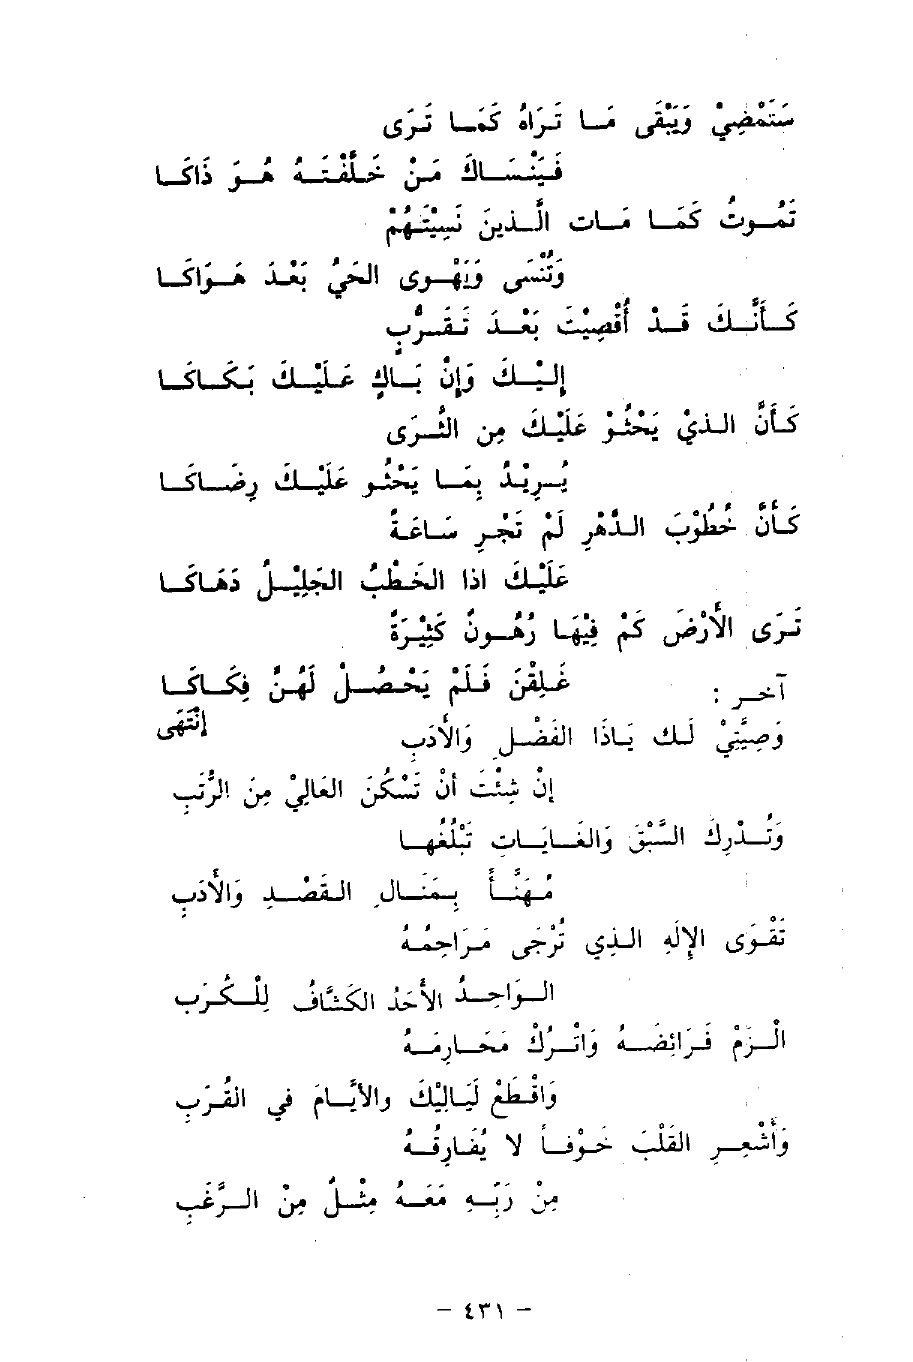 سَتَمْضِيْ وَيَبْقَى مَا تَرَاهُ كَمَا تَرَى
فَيَنْسَاكَ مَنْ خَلَّفْتَهُ هُوَ ذَاكَا
تَمُوتُ كَمَا مَات الَّذينَ نَسِيْتَهُمْ
وَتُنْسَى وَيَهْوى الحَيُّ بَعْدَ هَوَاكَا
كَأَنَّكَ قَدْ أُقْصِيْتَ بَعْدَ تَقَرُّبٍ
إِلَيْكَ وَإِنْ بَاكٍ عَلَيْكَ بَكَاكَا
كَأَنَّ الذيْ يَحْثُوْ عَلَيْكَ مِن الثَّرَى
يُرِيْدُ بِمَا يَحْثُو عَلَيْكَ رِضَاكَا
كَأَنَّ خُطُوْبَ الدَّهْرِ لَمْ تَجْرِ سَاعَةً
عَلَيْكَ اذا الخَطْبُ الجَلِيْلُ دَهَاكَا
تَرَى الأَرْضَ كَمْ فِيْهَا رُهُونٌ كَثِيْرَةٌ
غَلِقْنَ فَلَمْ يَحْصُلْ لَهُنَّ فِكَاكَا
إنْتَهَى
آخر :
وَصِيَّتِيْ لَك يَاذَا الفَضْلِ وَالأَدَبِ
إنْ شِئْتَ أنْ تَسْكُنَ العَالِيْ مِنَ الرُّتَبِ
وَتُدْرِكَ السَّبْقَ وَالغَايَاتِ تَبْلُغُها
مُهَنَّأً بِمَنَالِ القَصْدِ وَالأَدَبِ
تَقْوَى الإِلَهِ الذِي تُرْجَى مَرَاحِمُهُ
الوَاحِدُ الأَحَدُ الكَشَّافُ لِلْكُرَبِ
الْزَمْ فَرَائِضَهُ وَاتْرُكْ مَحَارِمَهُ
وَاقْطَعْ لَيَالِيْكَ والأَيَّامَ في القُرَبِ
وَأَشْعِرِ القَلْبَ خَوْفاً لا يُفَارِقُهُ
مِنْ رَبِّهِ مَعَهُ مِثْلٌ مِنْ الرَّغَبِ
– ٤٣١ –